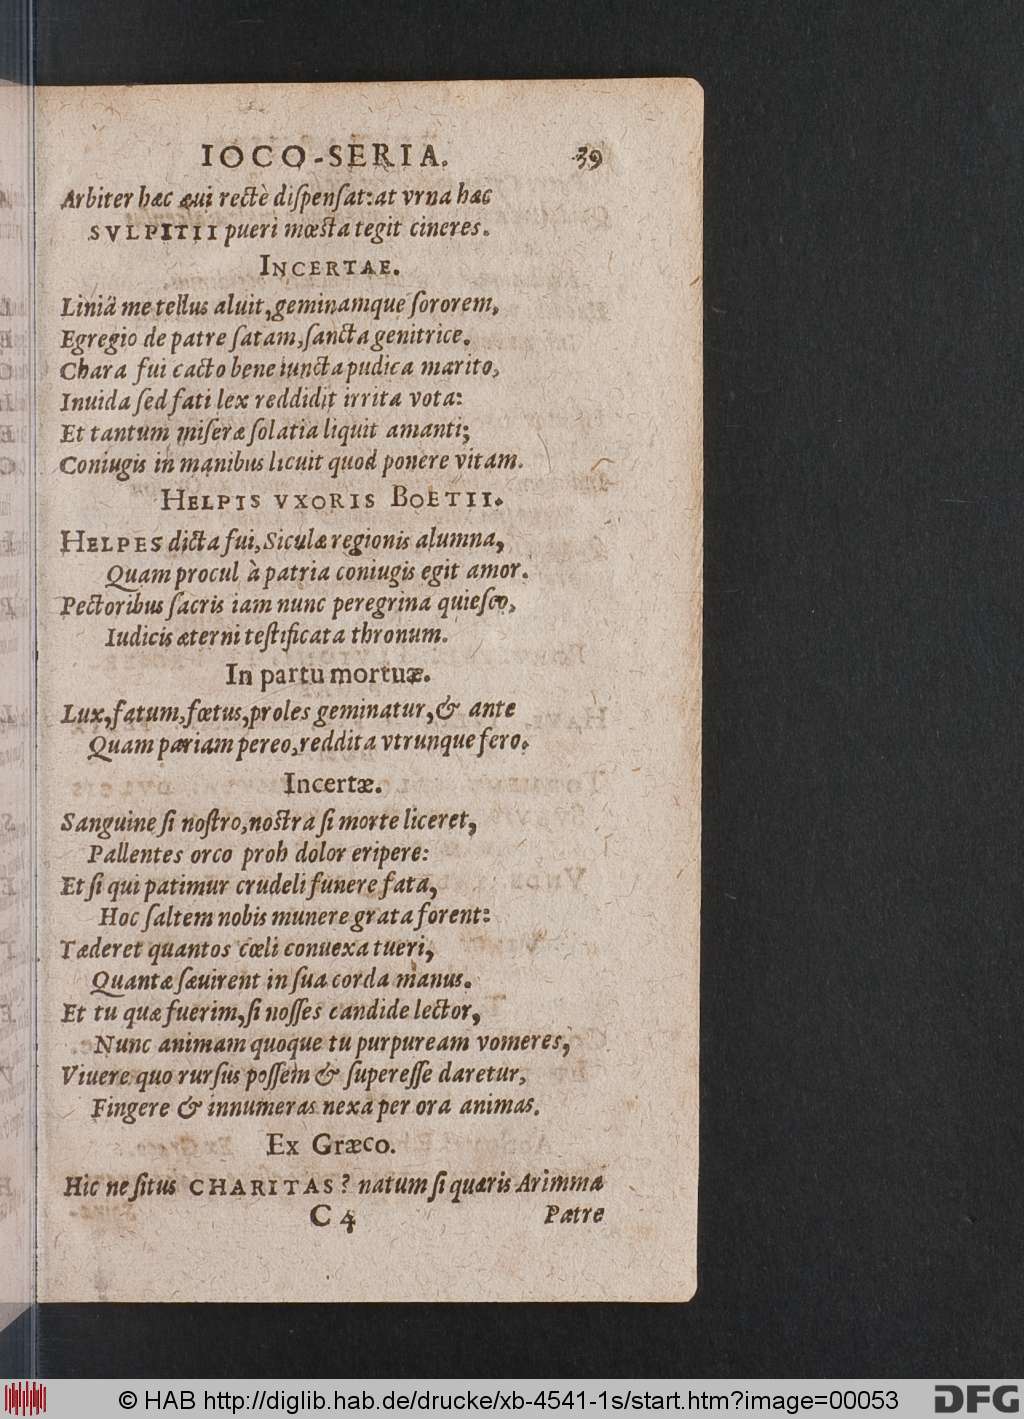 IOCO-SERIA. 39
Arbiter hæc æui rectè diſpenſat: at vrna hæc
SVLPITII pueri mœsta tegit cineres.
INCERTAE.
Liniä me tellus aluit, geminamque ſororem,
Egregio de patre ſatam, ſancta genitrice.
Chara fui cacto bene iuncta pudica marito,
Inuida ſed fati lex reddidit irrita vota:
Et tantum miſeræ ſolatia liquit amanti;
Coniugis in manibus licuit quod ponere vitam.
HELPIS VXORIS BOETII.
HELPES dicta fui, Siculæ regionis alumna,
Quam procul à patria coniugis egit amor.
Pectoribus ſacris iam nunc peregrina quieſco,
Iudicis æterni teſtificata thronum.
In partu mortuæ.
Lux, fatum, fœtus, proles geminatur, & ante
Quam pariam pereo, reddita vtrunque fero.
Incertæ.
Sanguine ſi noſtro, nostra ſi morte liceret,
Pallentes orco proh dolor eripere:
Et ſi qui patimur crudeli funere fata,
Hoc ſaltem nobis munere grata forent:
Tæderet quantos cœli conuexa tueri,
Quantæ ſæuirent in ſua corda manus.
Et tu quæ fuerim, ſi noſſes candide lector,
Nunc animam quoque tu purpuream vomeres,
Viuere quo rurſus poſſem & ſupereſſe daretur,
Fingere & innumeras nexa per ora animas.
Ex Græco.
Hic ne ſitus CHARITAS? natum ſi quæris Arimmæ
C 4 Patre
© HAB http://diglib.hab.de/drucke/xb-4541-1s/start.htm?image=00053 DFG